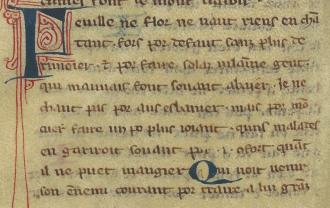 Feuille ne flor ne uaut riens en chā
tant. fors por defaut sanz plus de
rimoier. ⁊ por faire solaz uilainne gent.
qui mauuais font souuant abaier. ie ne
chant pas por aus esbanier. mais por mō
cuer faire un po plus ioiant. quns malades
en garist souuant par .i. confort. quāt
il ne puet mangier Qui uoit uenir
son enemi courant por traire a lui granz